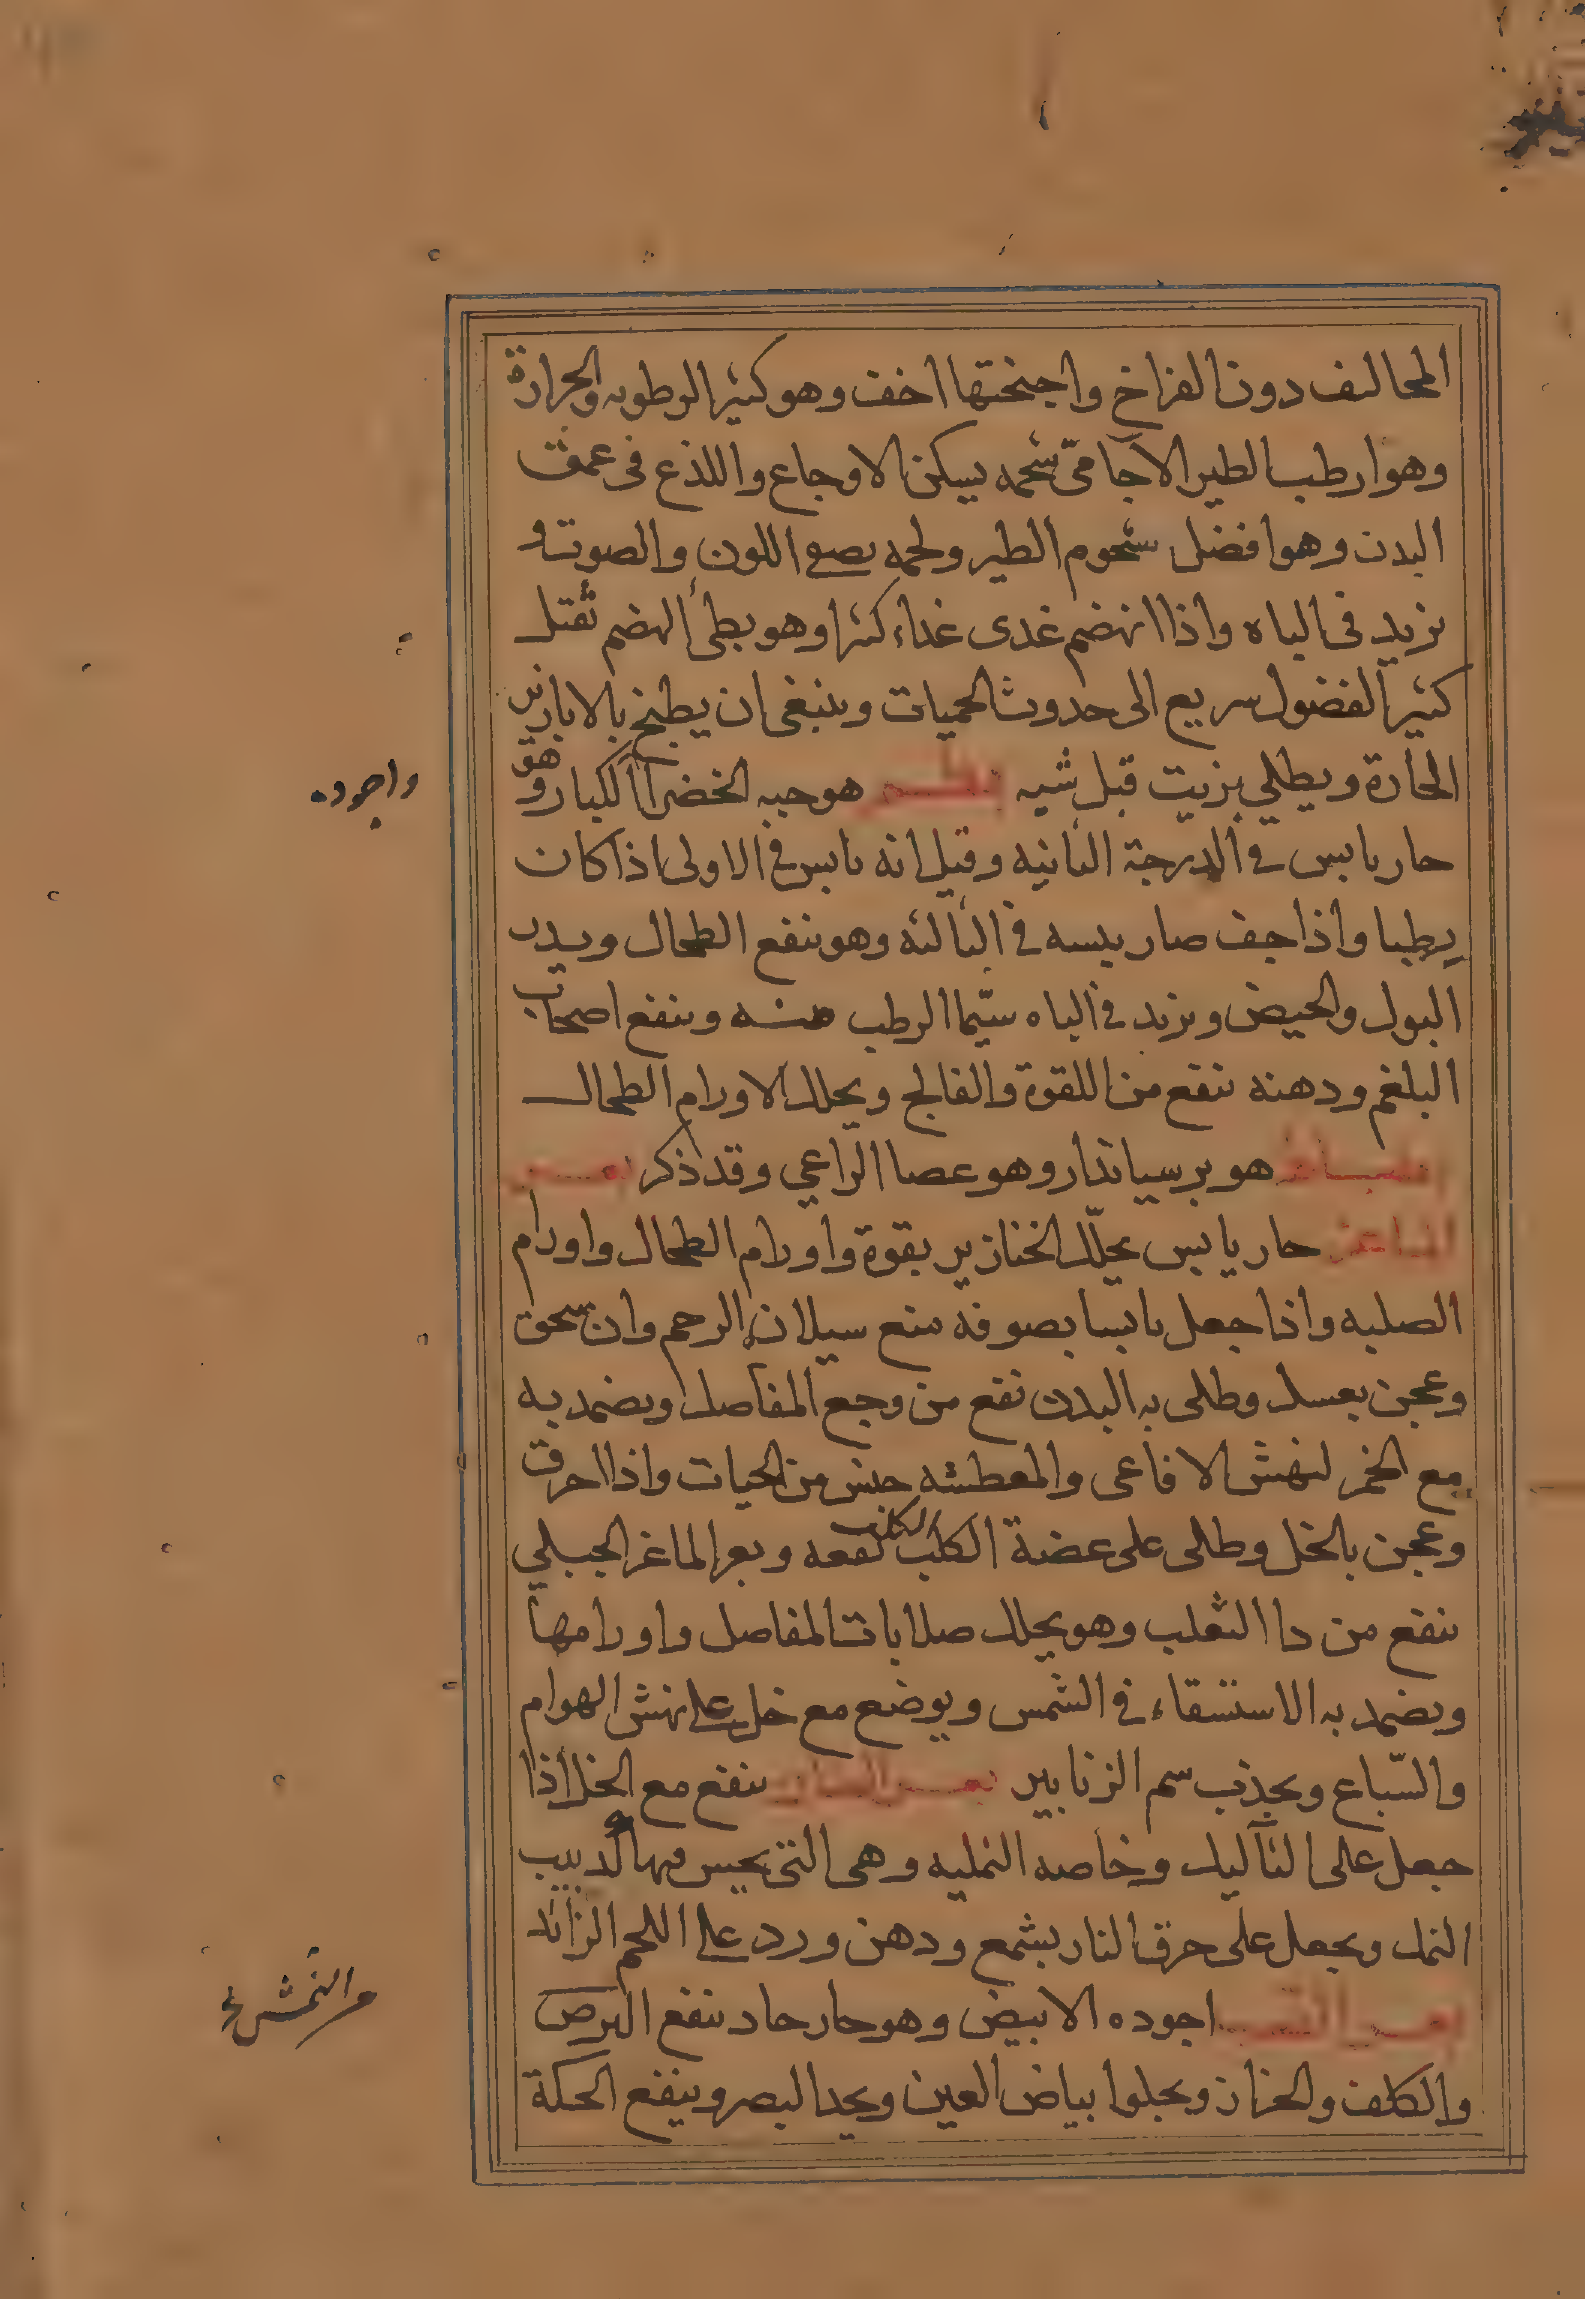 المخاليف دون الفراخ واجنحتها اخف وهو كثير الرطوبه والحرارة
وهو ارطب الطير الآجامىّ شحمه يسكن الاوجاع واللذع فى عمق
البدن وهو افضل شحوم الطير ولحمه يصفى اللون والصوت و
يزيد فى الباه واذا انهضم غدى غذاء كثيرا وهو بطئ الهضم ثقيل
كثير الفضول سريع الى حدوث الحميات وينبغى ان يطبخ بالابازير
الحارة ويطلي بزيت قبل شيه بطم هو حبه الخضرا الكبار وهو
واجوده
حار يابس في الدرجة الثانيه وقيل انه يابس في الاولى اذا كان
رطبا واذا جف صار يبسه في الثالثه وهو ينفع الطحال ويدر
البول والحيض ويزيد في الباه سيّما الرطب منه وينفع اصحاب
البلغم ودهنه ينفع من اللقوة والفالج ويحلل الاورام الطحال
بطباط هو برسياندار وهو عصا الراعي وقد ذكر بعر
الماعز حار يابس يحلّل الخنازير بقوة واورام الطحال واورام
الصلبه واذا جعل يابسا بصوفه منع سيلان الرحم وان سحق
وعجن بعسل وطلى به البدن نفع من وجع المفاصل ويضمد به
مع الخمر لنهش الافاعى والمعطشه جنس من الحيات واذا احرق
وعجن بالخل وطلى على عضة الكلب الكلب نفعه وبعر الماعز الجبلي
ينفع من دا الثعلب وهو يحلل صلابات المفاصل واورامها
ويضمد به الاستسقاء في الشمس ويوضع مع خل على نهش الهوام
والسّباع ويجذب سم الزنابير بعر الضان ينفع مع الخل اذا
جعل على الثآليل وخاصه النمليه وهى التى يحس فيها كدبيب
النمل ويجعل على حرق النار بشمع ودهن ورد على اللحم الزائد
بعر الضب اجوده الابيض وهو حار حاد ينفع البرص
والنمش
والكلف والحزاز ويجلوا بياض العين ويحد البصر وينفع الحكة